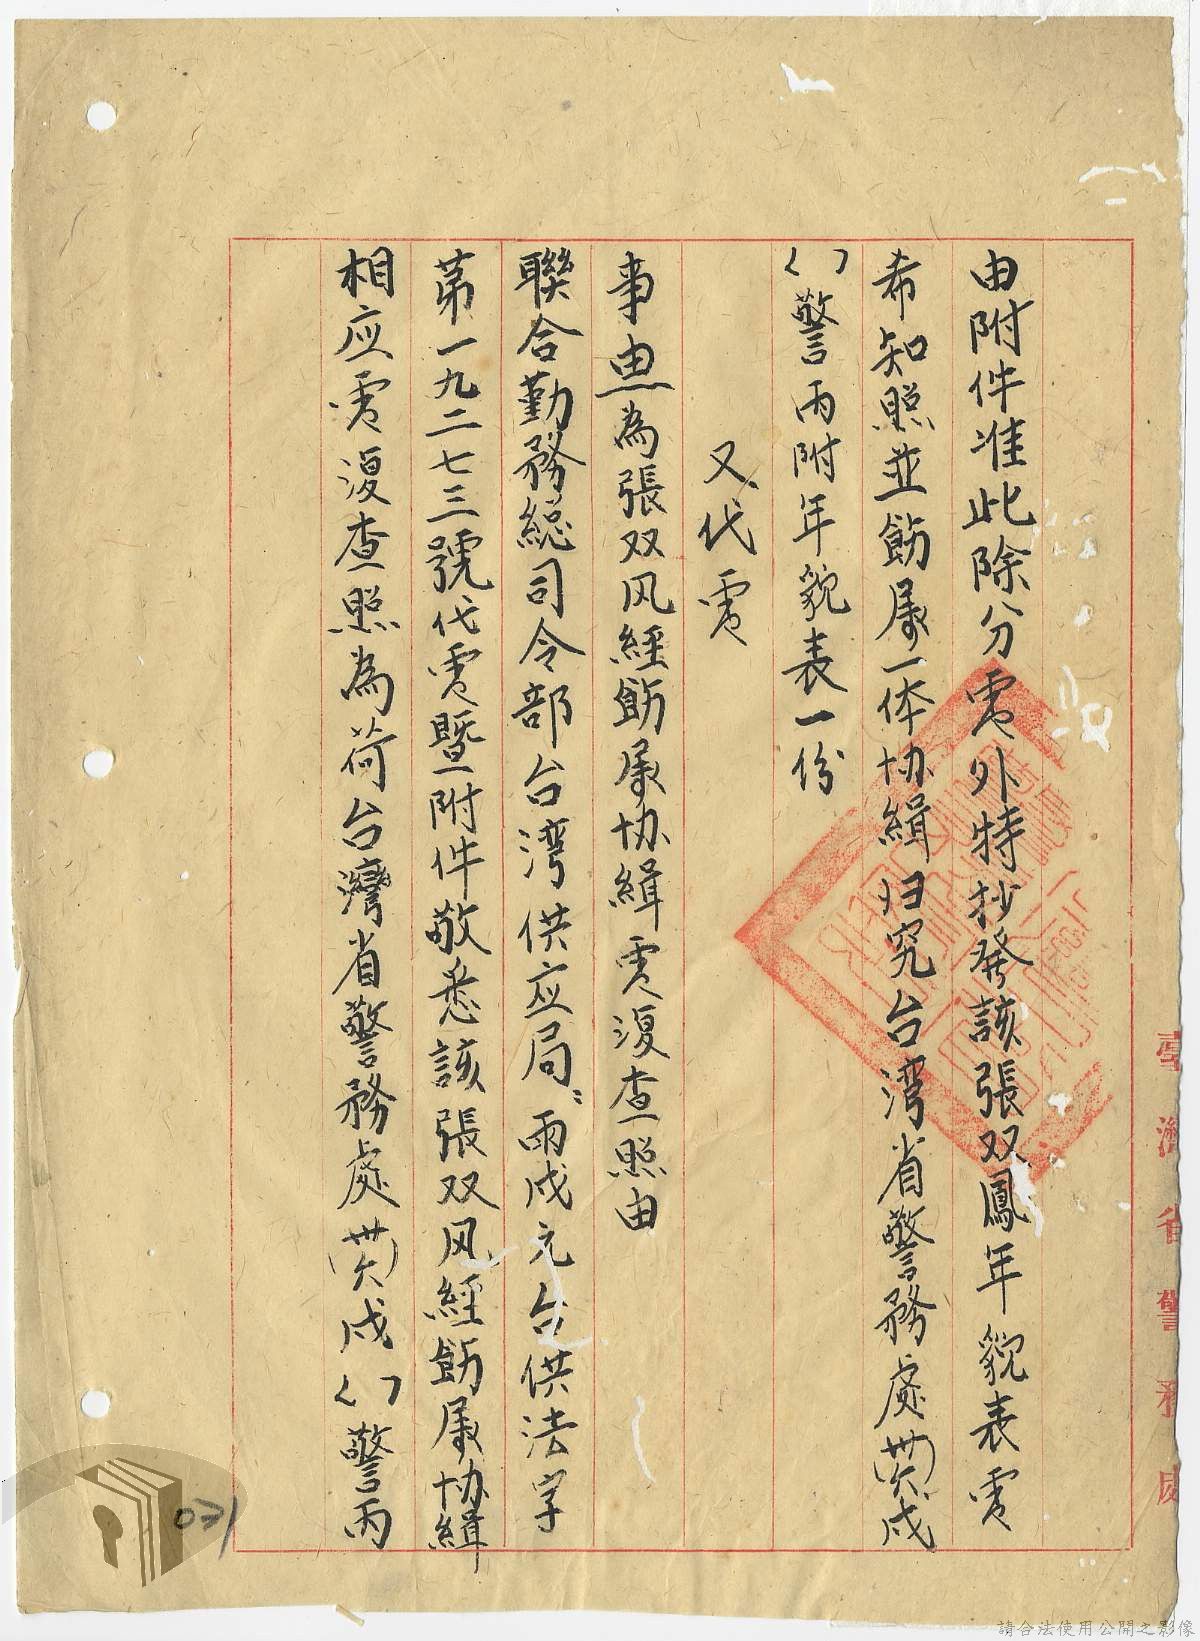 由附件准此除分電外特抄發該張双鳳年貌表電
希知照並飭属一体协緝归究台湾省警務處(卅六)戍
〈〉警丙附年貌表一份
又代電
事由為張双凤經飭属协緝電復查照由
聯合勤務總司令部台湾供应局:雨戍元台供法字
第一九二七三號代電暨附件敬悉該張双凤經飭属协緝
相应電復查照為荷台灣省警務處(卅六)戍〈〉警丙
臺灣省警務處
031
請合法使用公開之影像